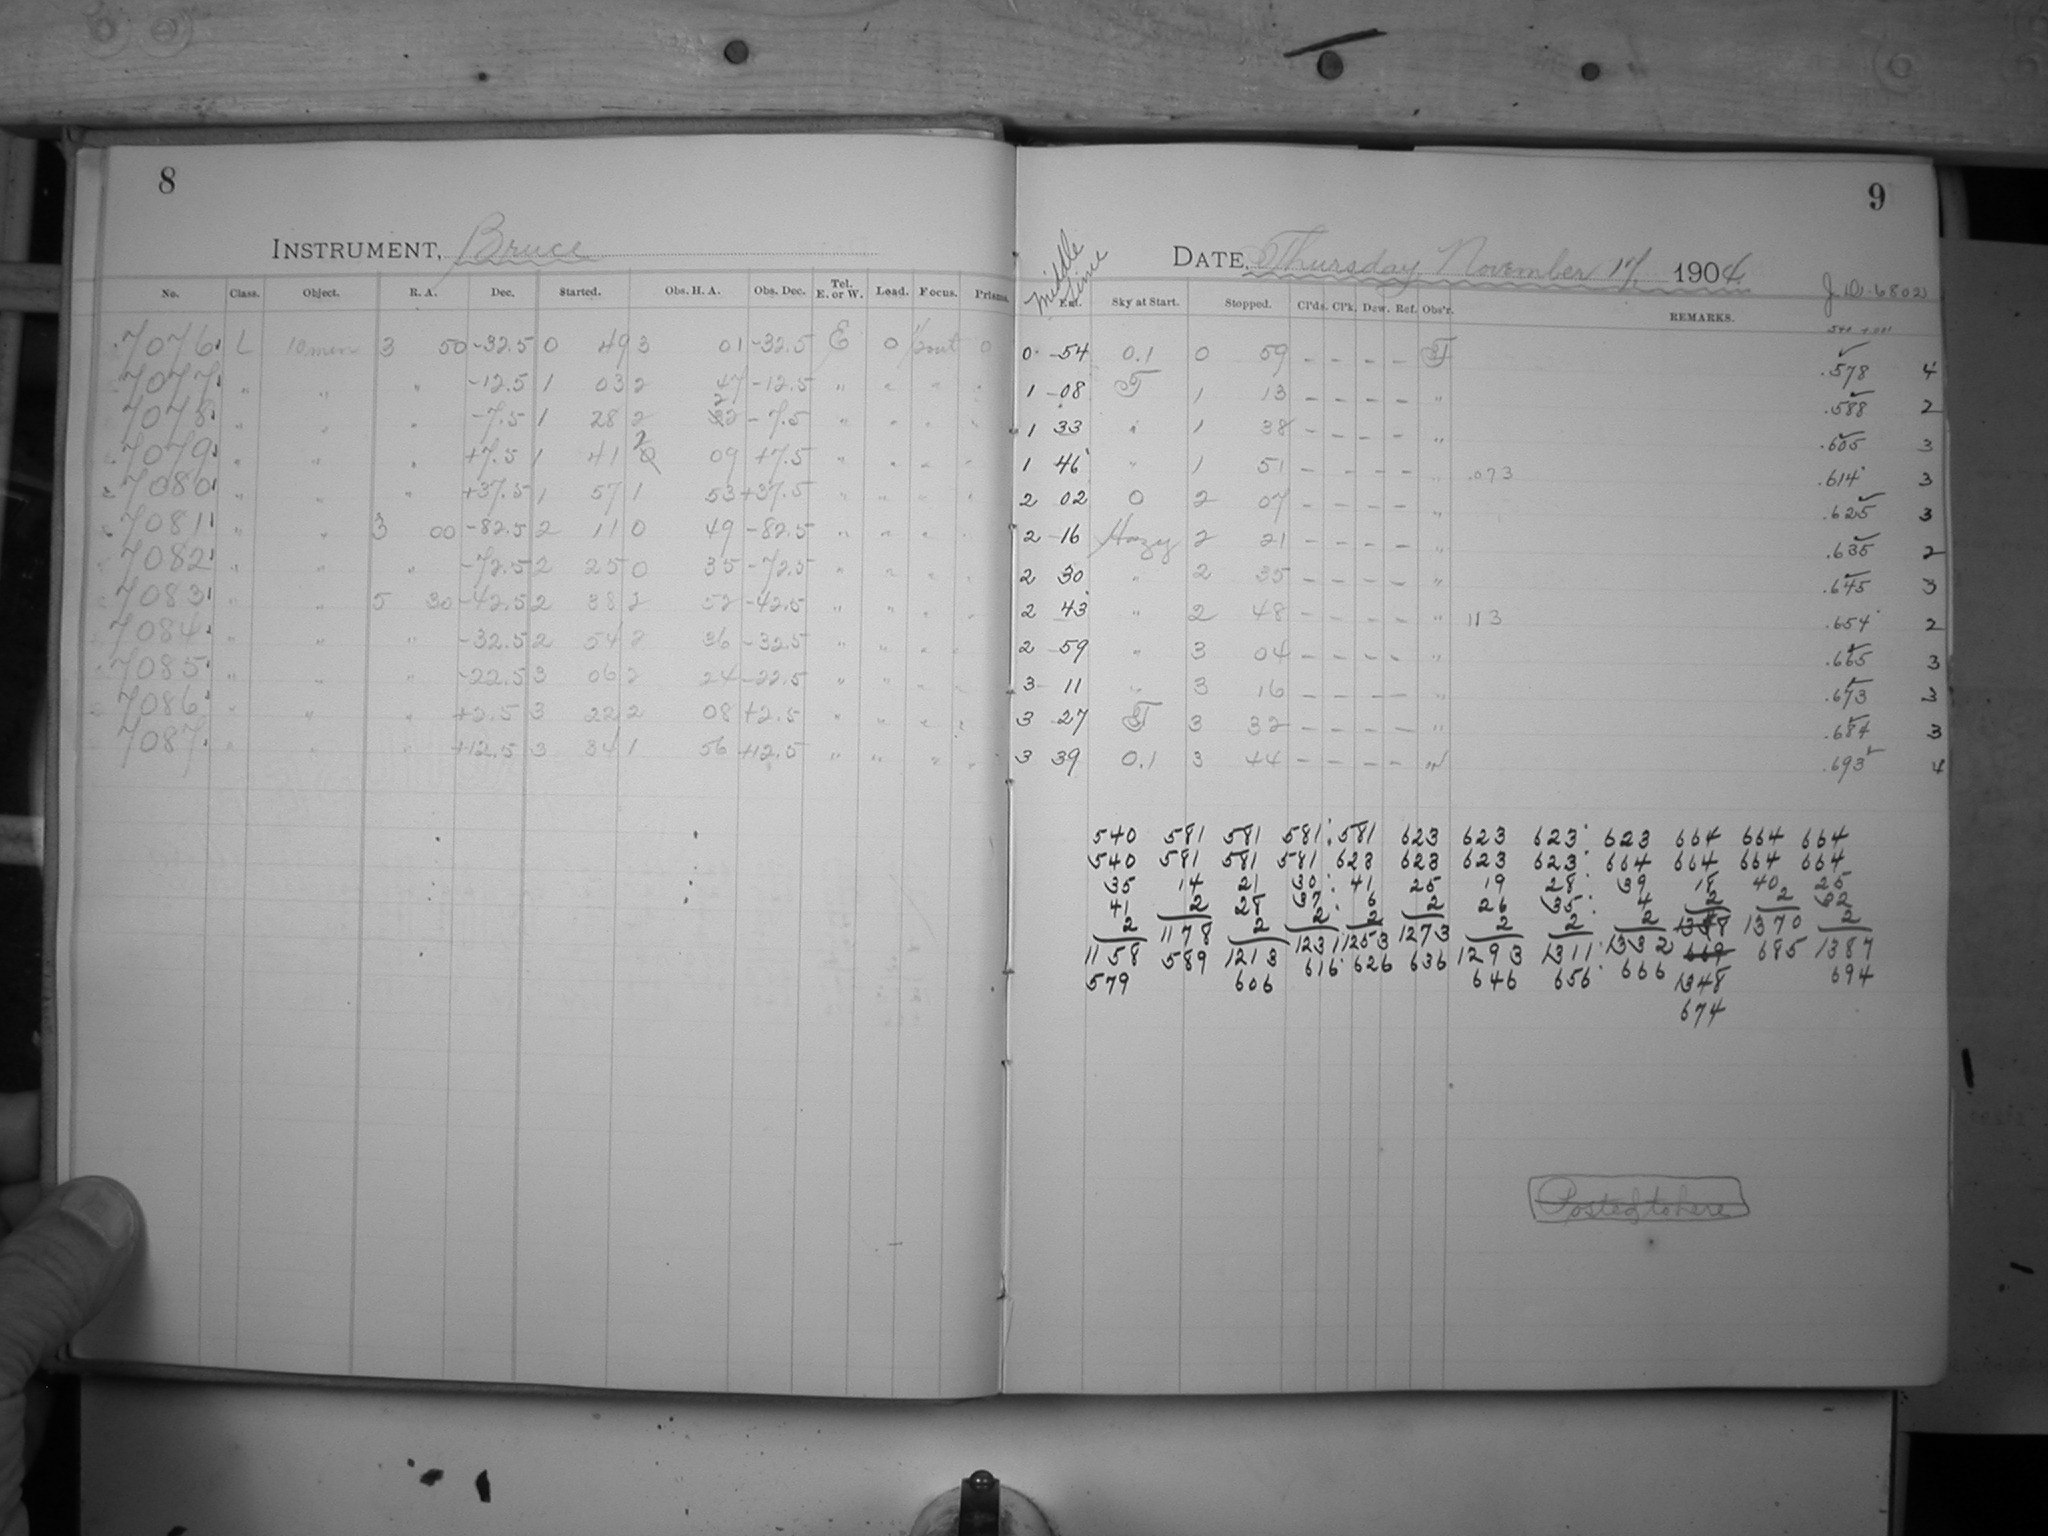 8
INSTRUMENT, Bruce
No. Class. Object. R. A. Dec. Started. Obs. H. A. Obs. Dec. Tel. E. or W. Load. Focus. Prisms.
7076 L 10 min 3 50 -32.5 0 49 3 01 -32.5 E 0 0
7077 " " " -12.5 1 03 2 47 -12.5 " " " "
7078 " " " -7.5 1 28 2 22 -7.5 " " " "
7079 " " " +7.5 1 41 2 09 +7.5 " " " "
7080 " " " +37.5 1 57 1 53 +37.5 " " " "
7081 " " 3 00 -82.5 2 11 0 49 -82.5 " " " "
7082 " " " -72.5 2 25 0 35 -72.5 " " " "
7083 " " 5 30 -42.5 2 38 2 52 -42.5 " " " "
7084 " " " -32.5 2 54 2 36 -32.5 " " " "
7085 " " " -22.5 3 06 2 24 -22.5 " " " "
7086 " " " +2.5 3 22 2 08 +2.5 " " " "
7087 " " " +12.5 3 34 1 56 +12.5 " " " "
9
Middle Time
DATE, Thursday, November 17, 1904.
J.D.-6802
Ext. Sky at Start. Stopped. Cl'ds. Cl'k. Dew. Ref. Obs'r. REMARKS.
0 54 0.1 0 59 - - - - .578 4
1 08 1 13 - - - - " .588 2
1 33 " 1 38 - - - - " .605 3
1 46 " 1 51 - - - - " .073 .614 3
2 02 0 2 07 - - - - " .625 3
2 16 Hazy 2 21 - - - - " .635 2
2 30 " 2 35 - - - - " .645 3
2 43 " 2 48 - - - - " 113 .654 2
2 59 " 3 04 - - - - " .665 3
3 11 " 3 16 - - - - " .673 3
3 27 3 32 - - - - " .684 3
3 39 0.1 3 44 - - - - " .693 4
540 581 581 581 581 623 623 623 623 664 664 664
540 581 581 581 623 623 623 623 664 664 664 664
35 14 21 30 41 25 19 28 39 18 40 25
41 2 28 37 6 2 26 35 4 2 2 32
2 1178 2 2 2 1273 2 2 2 1338 1370 2
1158 589 1213 1231 1253 636 1293 1311 1332 669 685 1387
579 606 616 626 646 656 666 1348 694
674
Posted to here